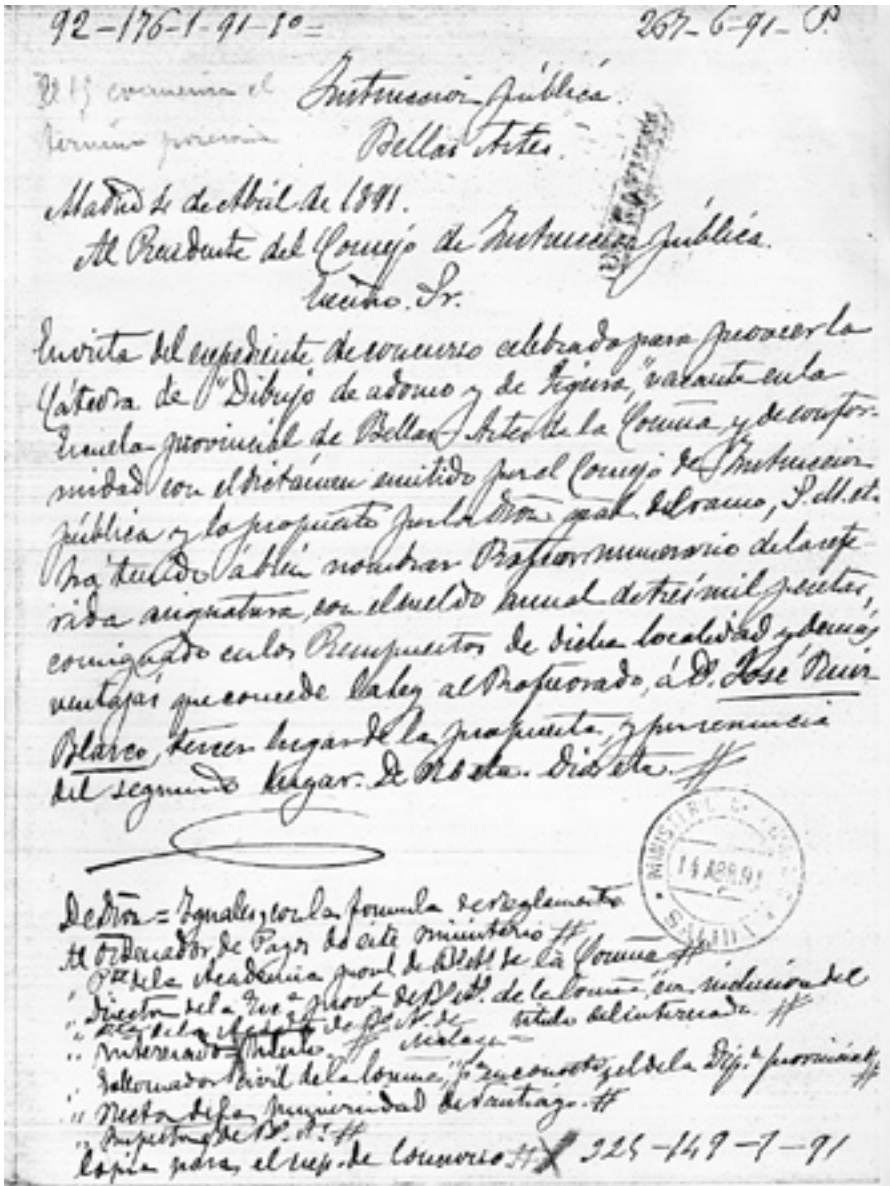 92-176-1-91-1º= 267-6-91- P.
El 15 comienza el
término posesorio
Instruccion pública.
Bellas Artes.
Madrid 4 de Abril de 1891.
Al Presidente del Consejo de Instruccion pública.
Excmo. Sr.
En vista del expediente de concurso celebrado para proveer la
Cátedra de "Dibujo de adorno y de figura," vacante en la
Escuela provincial de Bellas Artes de la Coruña y de confor-
midad con el dictámen emitido por el Consejo de Instruccion
pública y lo propuesto por la Dión gral. del ramo, S. M. etª
há tenido á bien nombrar Profesor numerario de la refe-
rida asignatura, con el sueldo anual de tres mil pesetas,
consignado en los Presupuestos de dicha localidad y demás
ventajas que concede la ley al Profesorado, á D. José Ruiz
Blasco, tercer lugar de la propuesta, y por renuncia
del segundo lugar. De Rl. O. etª. Dios etª. #
MINISTERIO DE FOMENTO
14 ABR 91
SALIDA
De Dión = Iguales y con la formula de reglamento
Al Ordenador de Pagos de este ministerio #
" Pte de la Academia provl. de Bs. As. de la Coruña #
" Director de la Escª provl. de Bs. As. de la Coruña, con inclusion del
título del interesado #
" de la de Bs. As. de Malaga
" interesado = título. #
" Gobernador Civil de la Coruña, pª su conocimtº y el de la Dipª provincial #
" Rector de la Universidad de Santiago. #
" Inspector de Bs. As. #
Copia para el exp. de Concurso # 225-149-1-91